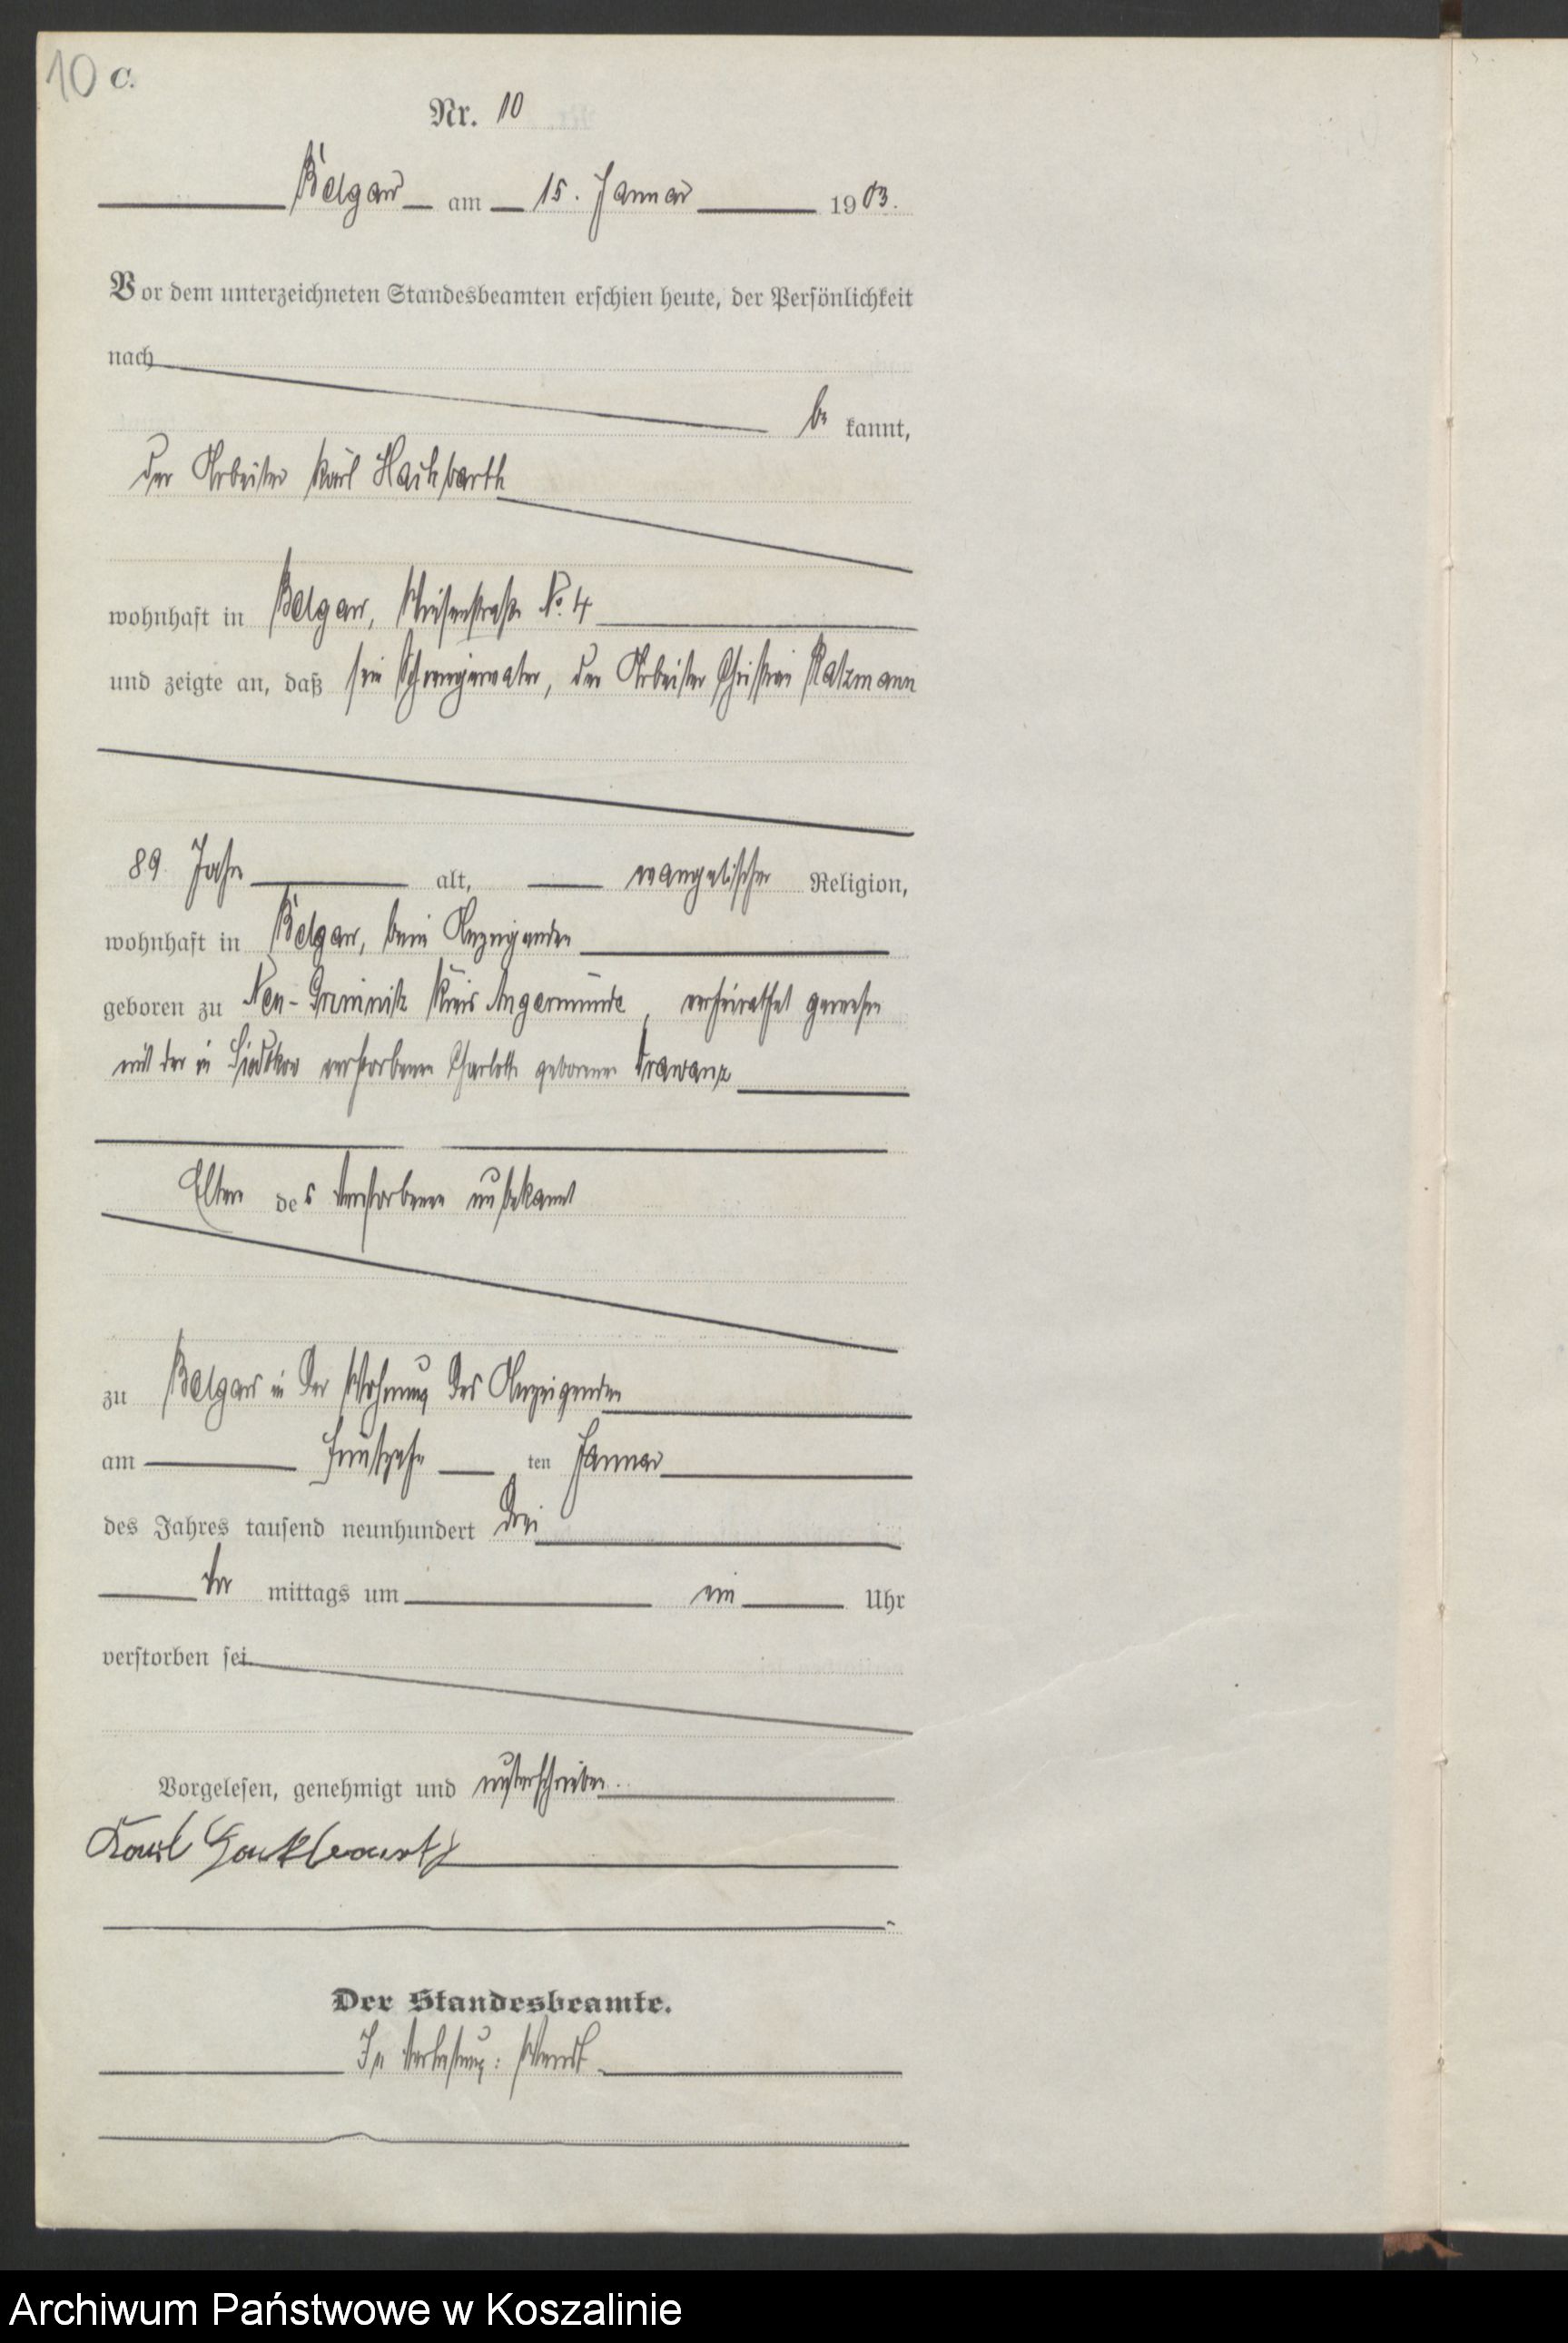 10 C.
Nr. 10
Belgard am 15. Januar 1903.
Vor dem unterzeichneten Standesbeamten erschien heute, der Persönlichkeit
nach
be kannt,
der Arbeiter Karl Hackbarth
wohnhaft in Belgard, Wiesenstraße No. 4
und zeigte an, daß sein Schwiegervater, der Arbeiter Christian Ratzmann
89 Jahre alt, evangelischer Religion,
wohnhaft in Belgard, beim Anzeigenden
geboren zu Neu-Grimnitz Kreis Angermünde, verheirathet gewesen
mit der in verstorbenen Charlotte geborenen
Eltern des Verstorbenen unbekannt
zu Belgard in der Wohnung des Anzeigenden
am fünfzehnten Januar
des Jahres tausend neunhundert drei
Vor mittags um ein Uhr
verstorben sei
Vorgelesen, genehmigt und unterschrieben.
Karl Hackbarth
Der Standesbeamte.
In Vertretung: Wendt
Archiwum Państwowe w Koszalinie